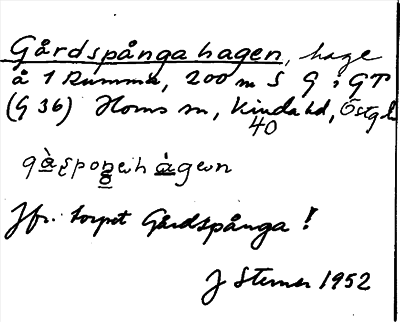 Gårdspångahagen, hage
å 1 Rumma, 200 m S G i GT
(G 36) Horns sn, Kinda hd, Östgl
40
Jfr. torpet Gårdspånga!
J Sterner 1952